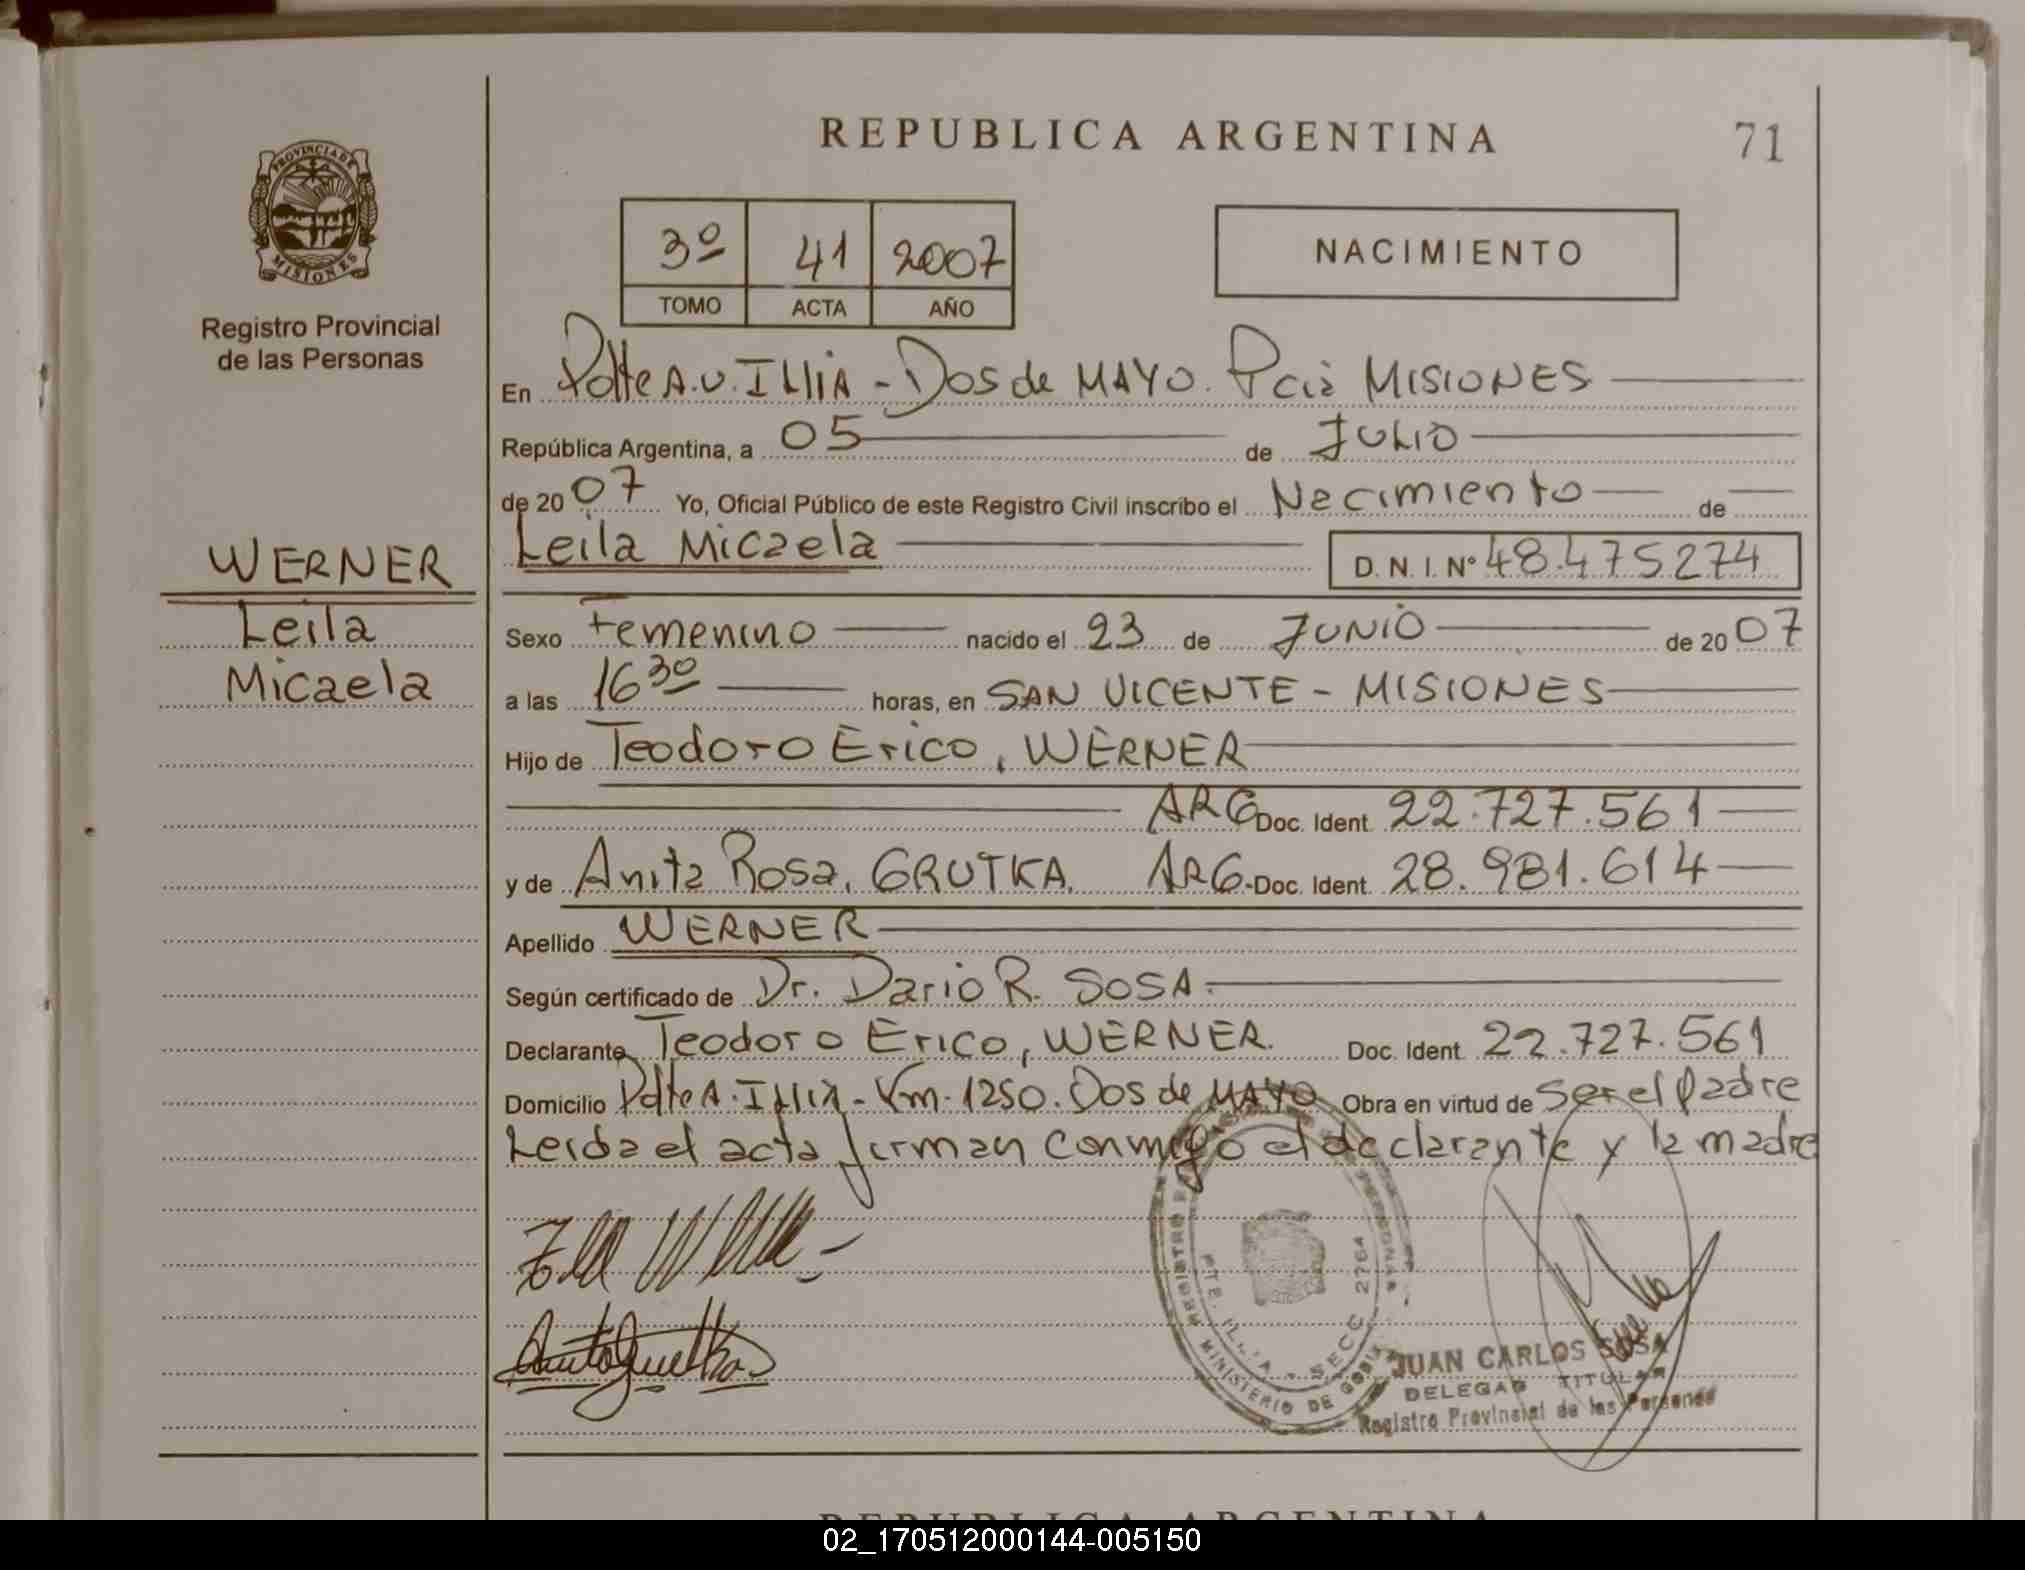 REPUBLICA ARGENTINA
71
PROVINCIA DE
MISIONES
Registro Provincial
de las Personas
3º 41 2007
TOMO ACTA AÑO
NACIMIENTO
En Pdte A.U. ILLIA - Dos de MAYO. Pcia MISIONES
República Argentina, a 05 de JULIO
de 20 07 Yo, Oficial Público de este Registro Civil inscribo el Nacimiento de
Leila Micaela D.N.I. Nº 48.475274
WERNER
Leila
Micaela
Sexo Femenino nacido el 23 de JUNIO de 20 07
a las 16 30 horas, en SAN VICENTE - MISIONES
Hijo de Teodoro Erico, WERNER
ARG Doc. Ident. 22.727.561
y de Anita Rosa, GRUTKA. ARG. Doc. Ident. 28.981.614
Apellido WERNER
Según certificado de Dr. Dario R. SOSA.
Declarante Teodoro Erico, WERNER. Doc. Ident. 22.727.561
Domicilio Pdte A. ILLIA - Km. 1250. Dos de MAYO Obra en virtud de Ser el Padre
Leida el acta firman conmigo el declarante y la madre
REGISTRO
PERSONAS
PTE. ILLIA - SECC. 2764
MINISTERIO DE GOBI
JUAN CARLOS SOSA
DELEGADO TITULAR
Registro Provincial de las Personas
REPUBLICA ARGENTINA
02_170512000144-005150